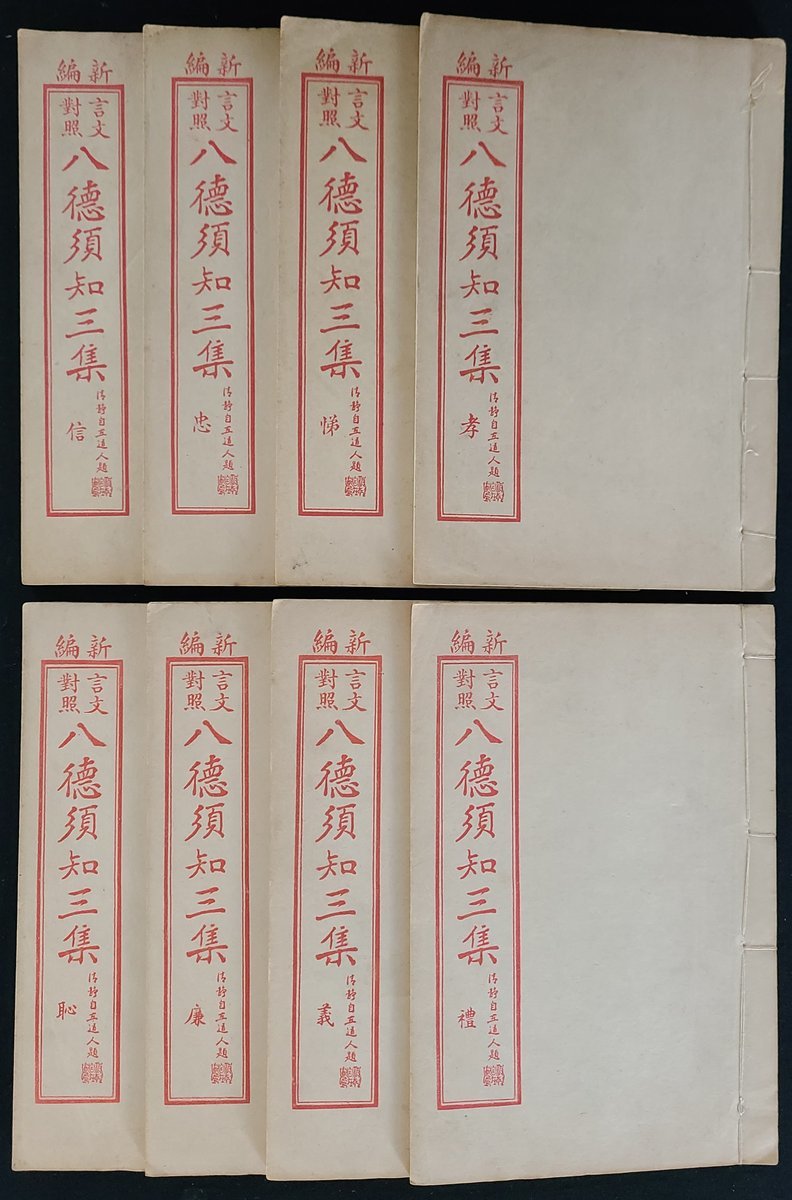 新編
言文
對照
八德須知三集
孝
清靜自道人題
新編
言文
對照
八德須知三集
悌
清靜自道人題
新編
言文
對照
八德須知三集
忠
清靜自道人題
新編
言文
對照
八德須知三集
信
清靜自道人題
新編
言文
對照
八德須知三集
禮
清靜自道人題
新編
言文
對照
八德須知三集
義
清靜自道人題
新編
言文
對照
八德須知三集
廉
清靜自道人題
新編
言文
對照
八德須知三集
恥
清靜自道人題